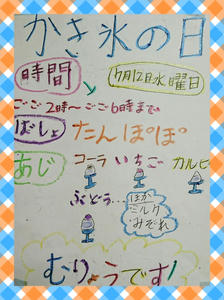 かき氷の日
時間 7月12日水曜日
ごご2時〜ごご6時まで
ばしょ たんぽぽ
あじ コーラ いちご カルピ
ぶどう…
ほか
ミルク
みぞれ
むりょうです!